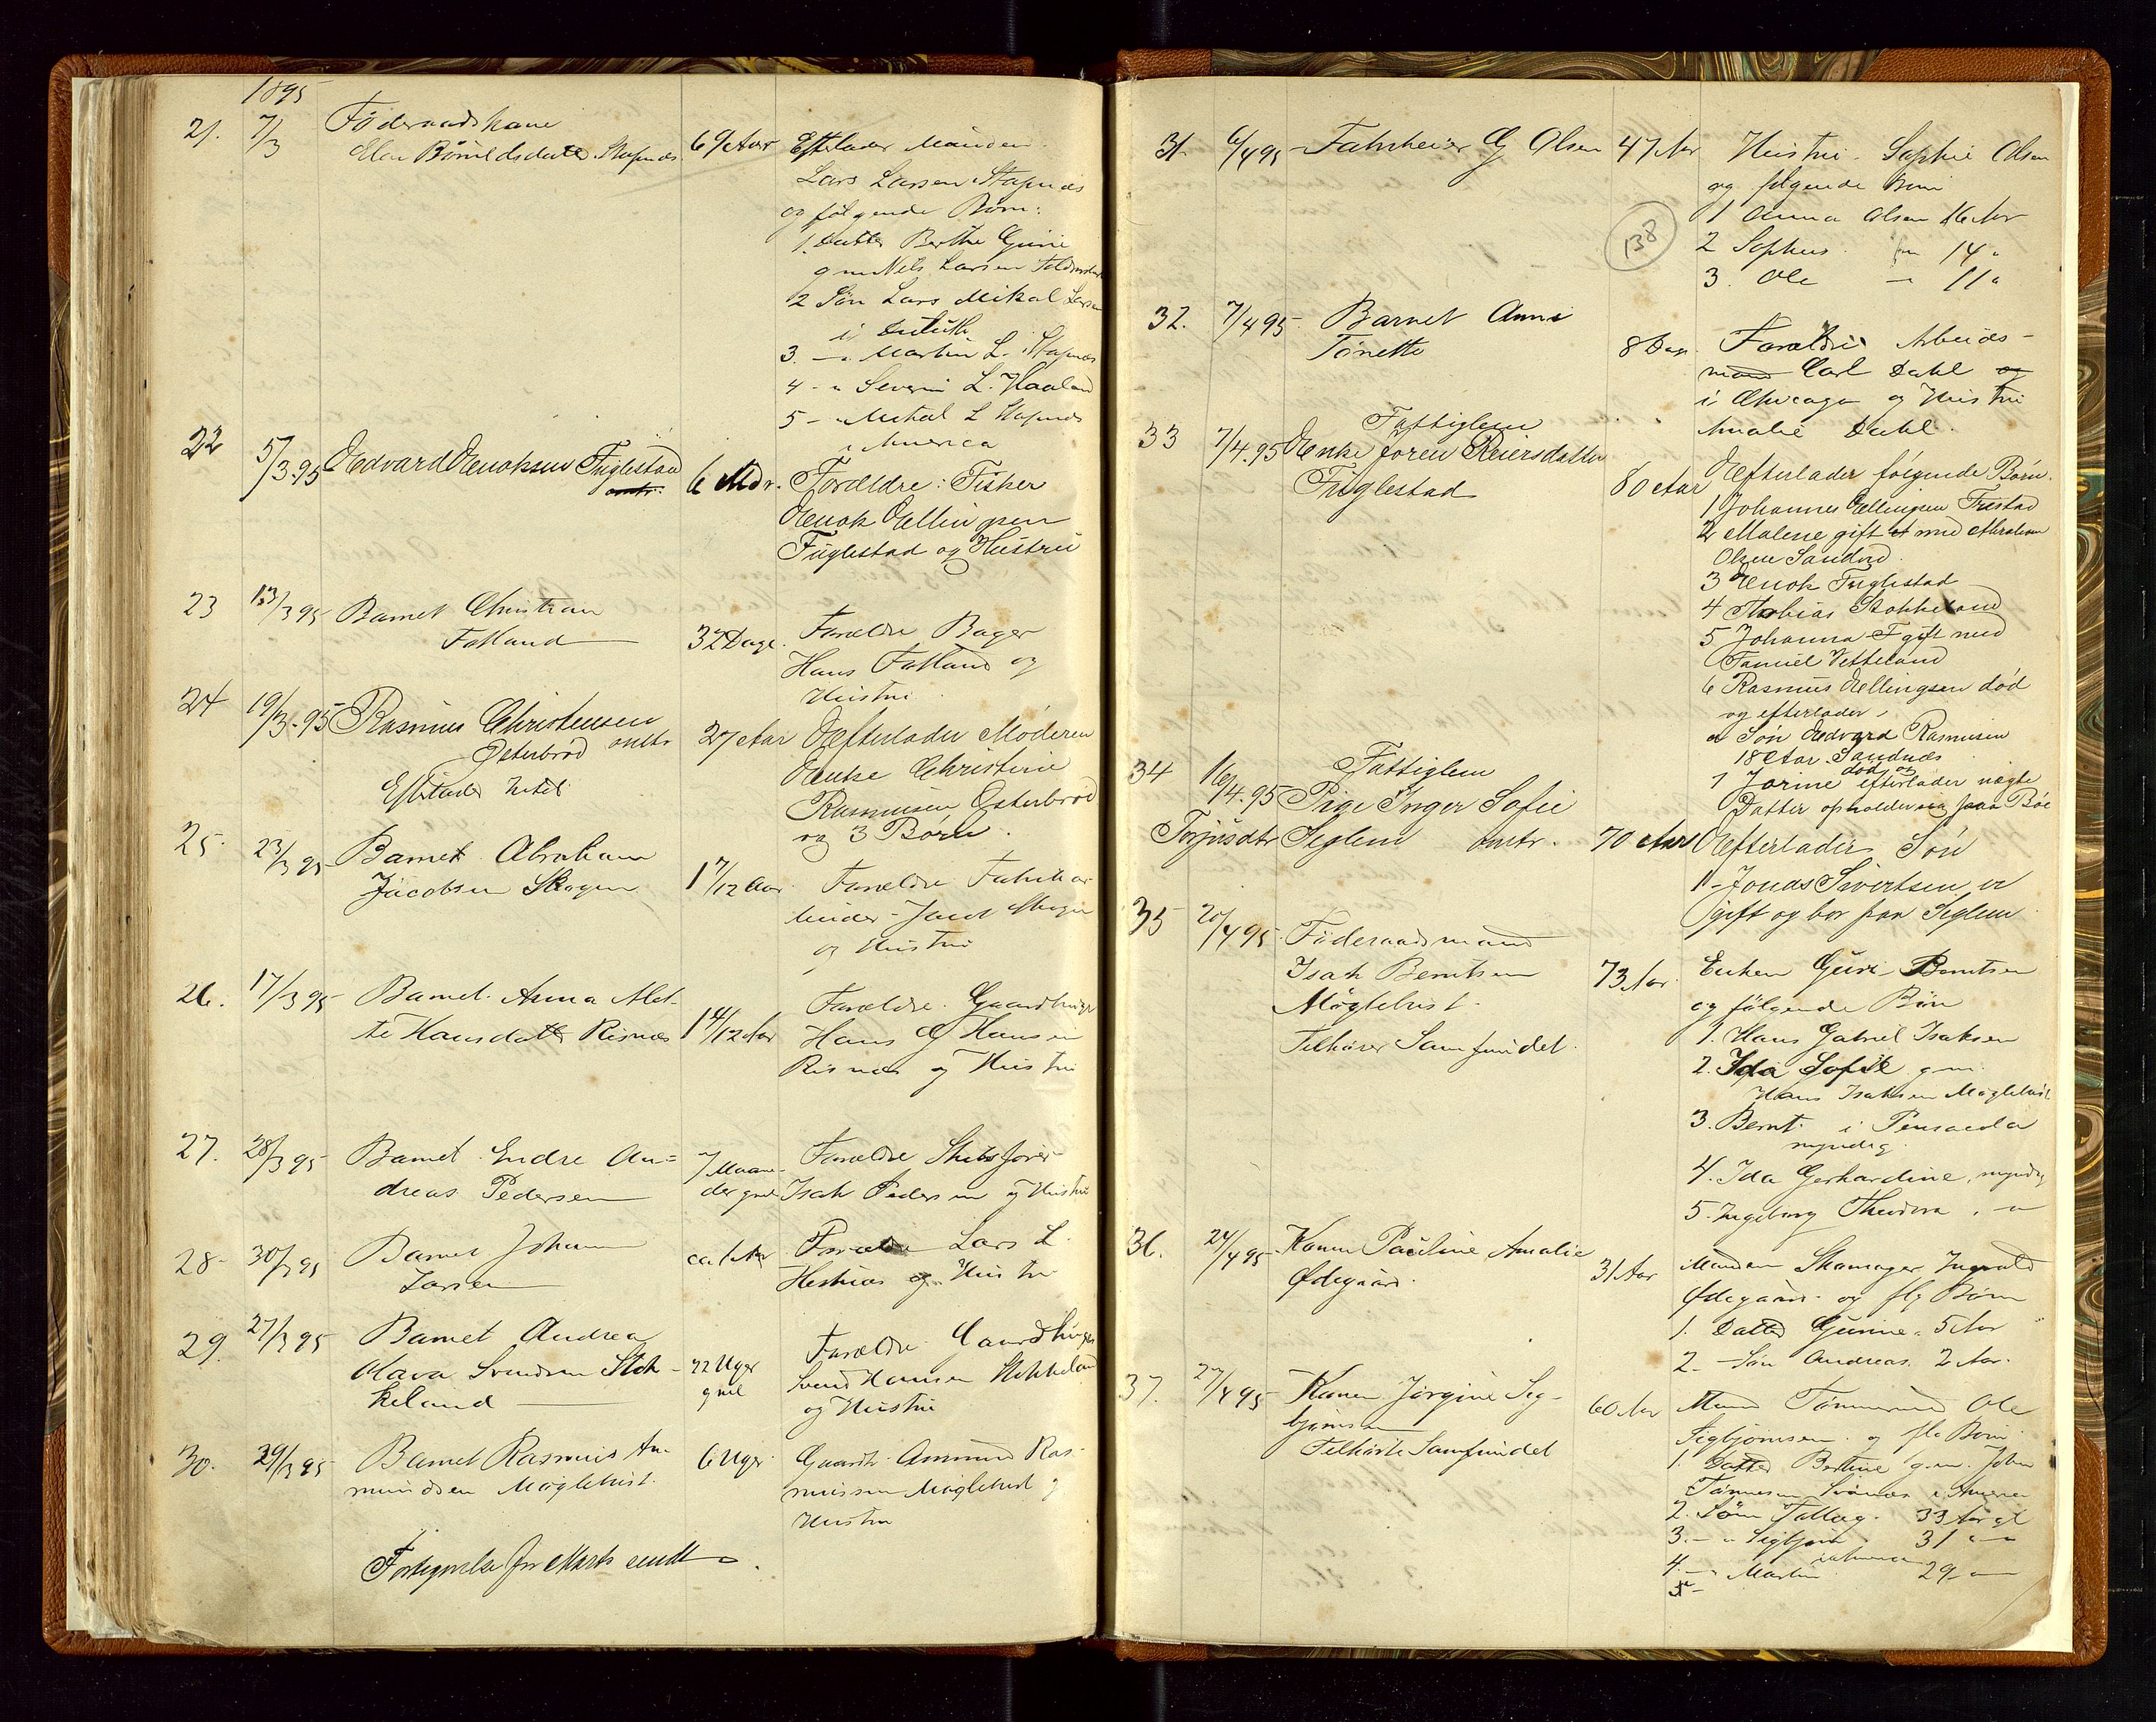 1895
21. 7/3 Föderaadskone
Elen Bårildsdatter Stapnæs 69 Aar Efterlader Manden
Lars Larsen Stapnæs
og følgende Børn:
1. Datter Berthe Gurine
gm Nils Larsen
2 Søn Lars Mikal Larsen
i Duluth
3. — " Martin L. Stapnæs
4 - " Severin L. Haaland
5 — " Mikal L Stapnæs
i America
22 5/3.95 Edvard Enoksen Fuglestad
omtr. 6 Mdr. Forældre: Fisker
Enok Ellingsen
Fuglestad og Hustru
23 13/3 95 Barnet Christian
Fotland 32 Dage. Forældre Bager
Hans Fotland og
Hustru
24 19/3.95 Rasmus Christensen
Østerbrød omtr 27 Aar Efterlader Moderen
Efterlader Intet
Enke Christine
Rasmussen Østerbrød
og 3 Børn.
25. 23/3 95 Barnet Abraham
Jacobsen Skogen 1 7/12 Aar Forældre Fabrikar-
beider Jacob Skogen
og Hustru
26. 17/3 95 Barnet Anna Met-
te Hansdatter Risnæs 1 4/12 Aar Forældre Gaardbruger
Hans G Hansen
Risnæs og Hustru
27. 28/3 95 Barnet Endre An=
dreas Pedersen 7 Maane-
der gml Forældre Skibsfører
Isak Pedersen og Hustru
28- 30/3 95 Barnet Johan
Larsen ca. 1 Aar Forældre Lars L.
Hestnæs og Hustru
29. 27/3 95 Barnet Andrea
Olava Svendsen Stok-
keland 22 Uger
gml Forældre Gaardbruger
Svend Hansen Stokkeland
og Hustru
30. 29/3 95 Barnet Rasmus Am-
mundsen Møglebust. 6 Uger Gaardb. Ammund Ras-
mussen Møglebust og
Hustru
Fortegnelse for Marts endt
31. 6/4 95 Fabrikeier G Olsen 47 Aar Hustru Sophie Olsen
og følgende Børn
1 Anna Olsen 16 Aar
138
2 Sophus 14 "
3. Ole — 11 "
32. 7/4 95. Barnet Anna
Tonette 8 Dage. Forældre Arbeids-
mand Carl Dahl og
i Chicago og Hustru
Amalie Dahl.
33 7/4.95 Fattiglem
Enke Joren Reiersdatter
Fuglestad 80 Aar Efterlader følgende Børn.
1 Johannes Ellingsen Frestad
2 Malene gift med Abraham
Olsen Sandvd
3 Enok Fuglestad
4 Thobias Stokkeland
5 Johanna F gift med
Samuel Vetteland
6 Rasmus Ellingsen død
og efterlader,
a Søn Edvard Rasmusen
18 Aar Sandnæs
7 Jorine død og efterlader uægte
Datter opholder sig paa Bøe
34 16/4.95 Fattiglem
Pige Inger Sofie
Torjusdtr Seglem omtr. 70 Aar Efterlader Søn
1 - Jonas Sivertsen er
gift og bor paa Seglem
35 20/4 95. Föderaadsmand
Isak Berntsen
Møglebust.
Tilhører Samfundet. 73 Aar. Enken Guri Berntsen
og følgende Børn
1. Hans Gabriel Isaksen
2. Ida Sofie gm.
Hans Isaksen Møglebust
3. Bernt i Pensacola
myndig.
4. Ida Gerhardine, myndig
5. Ingeborg Theodora, — "
36. 24/4 95 Konen Pauline Amalie
Ødegaard. 31 Aar Manden Skomager Ingvald
Ødegaard og flg Børn
1. Datter Gurine. 5 Aar
2. — Søn Andreas. 2 Aar.
37. 27/4 95 Konen Jørgine Sig-
bjørnsen
Tilhörte Samfundet 60 Aar Mand Tømmermd Ole
Sigbjørnsen og flg Børn
1. Datter Bertine gm. John
Tønnesen i America
2. Søn Tallag. 33 Aar gl
3. — " Sigbjørn 31 " —
i America
4. — " Martin 29 — "
5 —